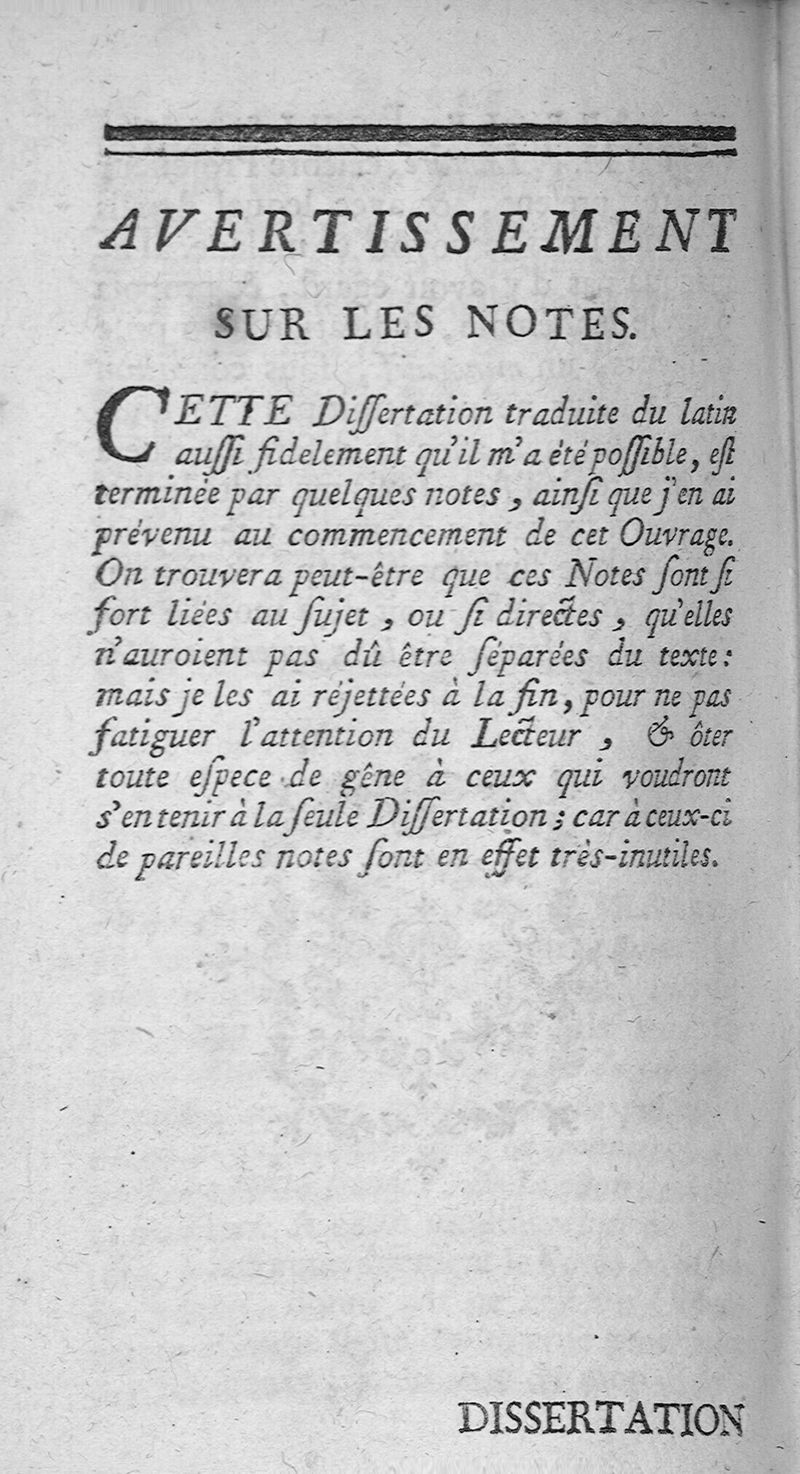 AVERTISSEMENT
SUR LES NOTES.
CETTE Diſſertation traduite du latin
auſſi fidelement qu'il m'a été poſſible, eſt
terminée par quelques notes, ainſi que j'en ai
prévenu au commencement de cet Ouvrage.
On trouvera peut-être que ces Notes ſont ſi
fort liées au ſujet, ou ſi directes, qu'elles
n'auroient pas dû être ſéparées du texte:
mais je les ai réjettées à la fin, pour ne pas
fatiguer l'attention du Lecteur, & ôter
toute eſpece de gêne à ceux qui voudront
s'en tenir à la ſeule Diſſertation; car à ceux-ci
de pareilles notes ſont en effet très-inutiles.
DISSERTATION